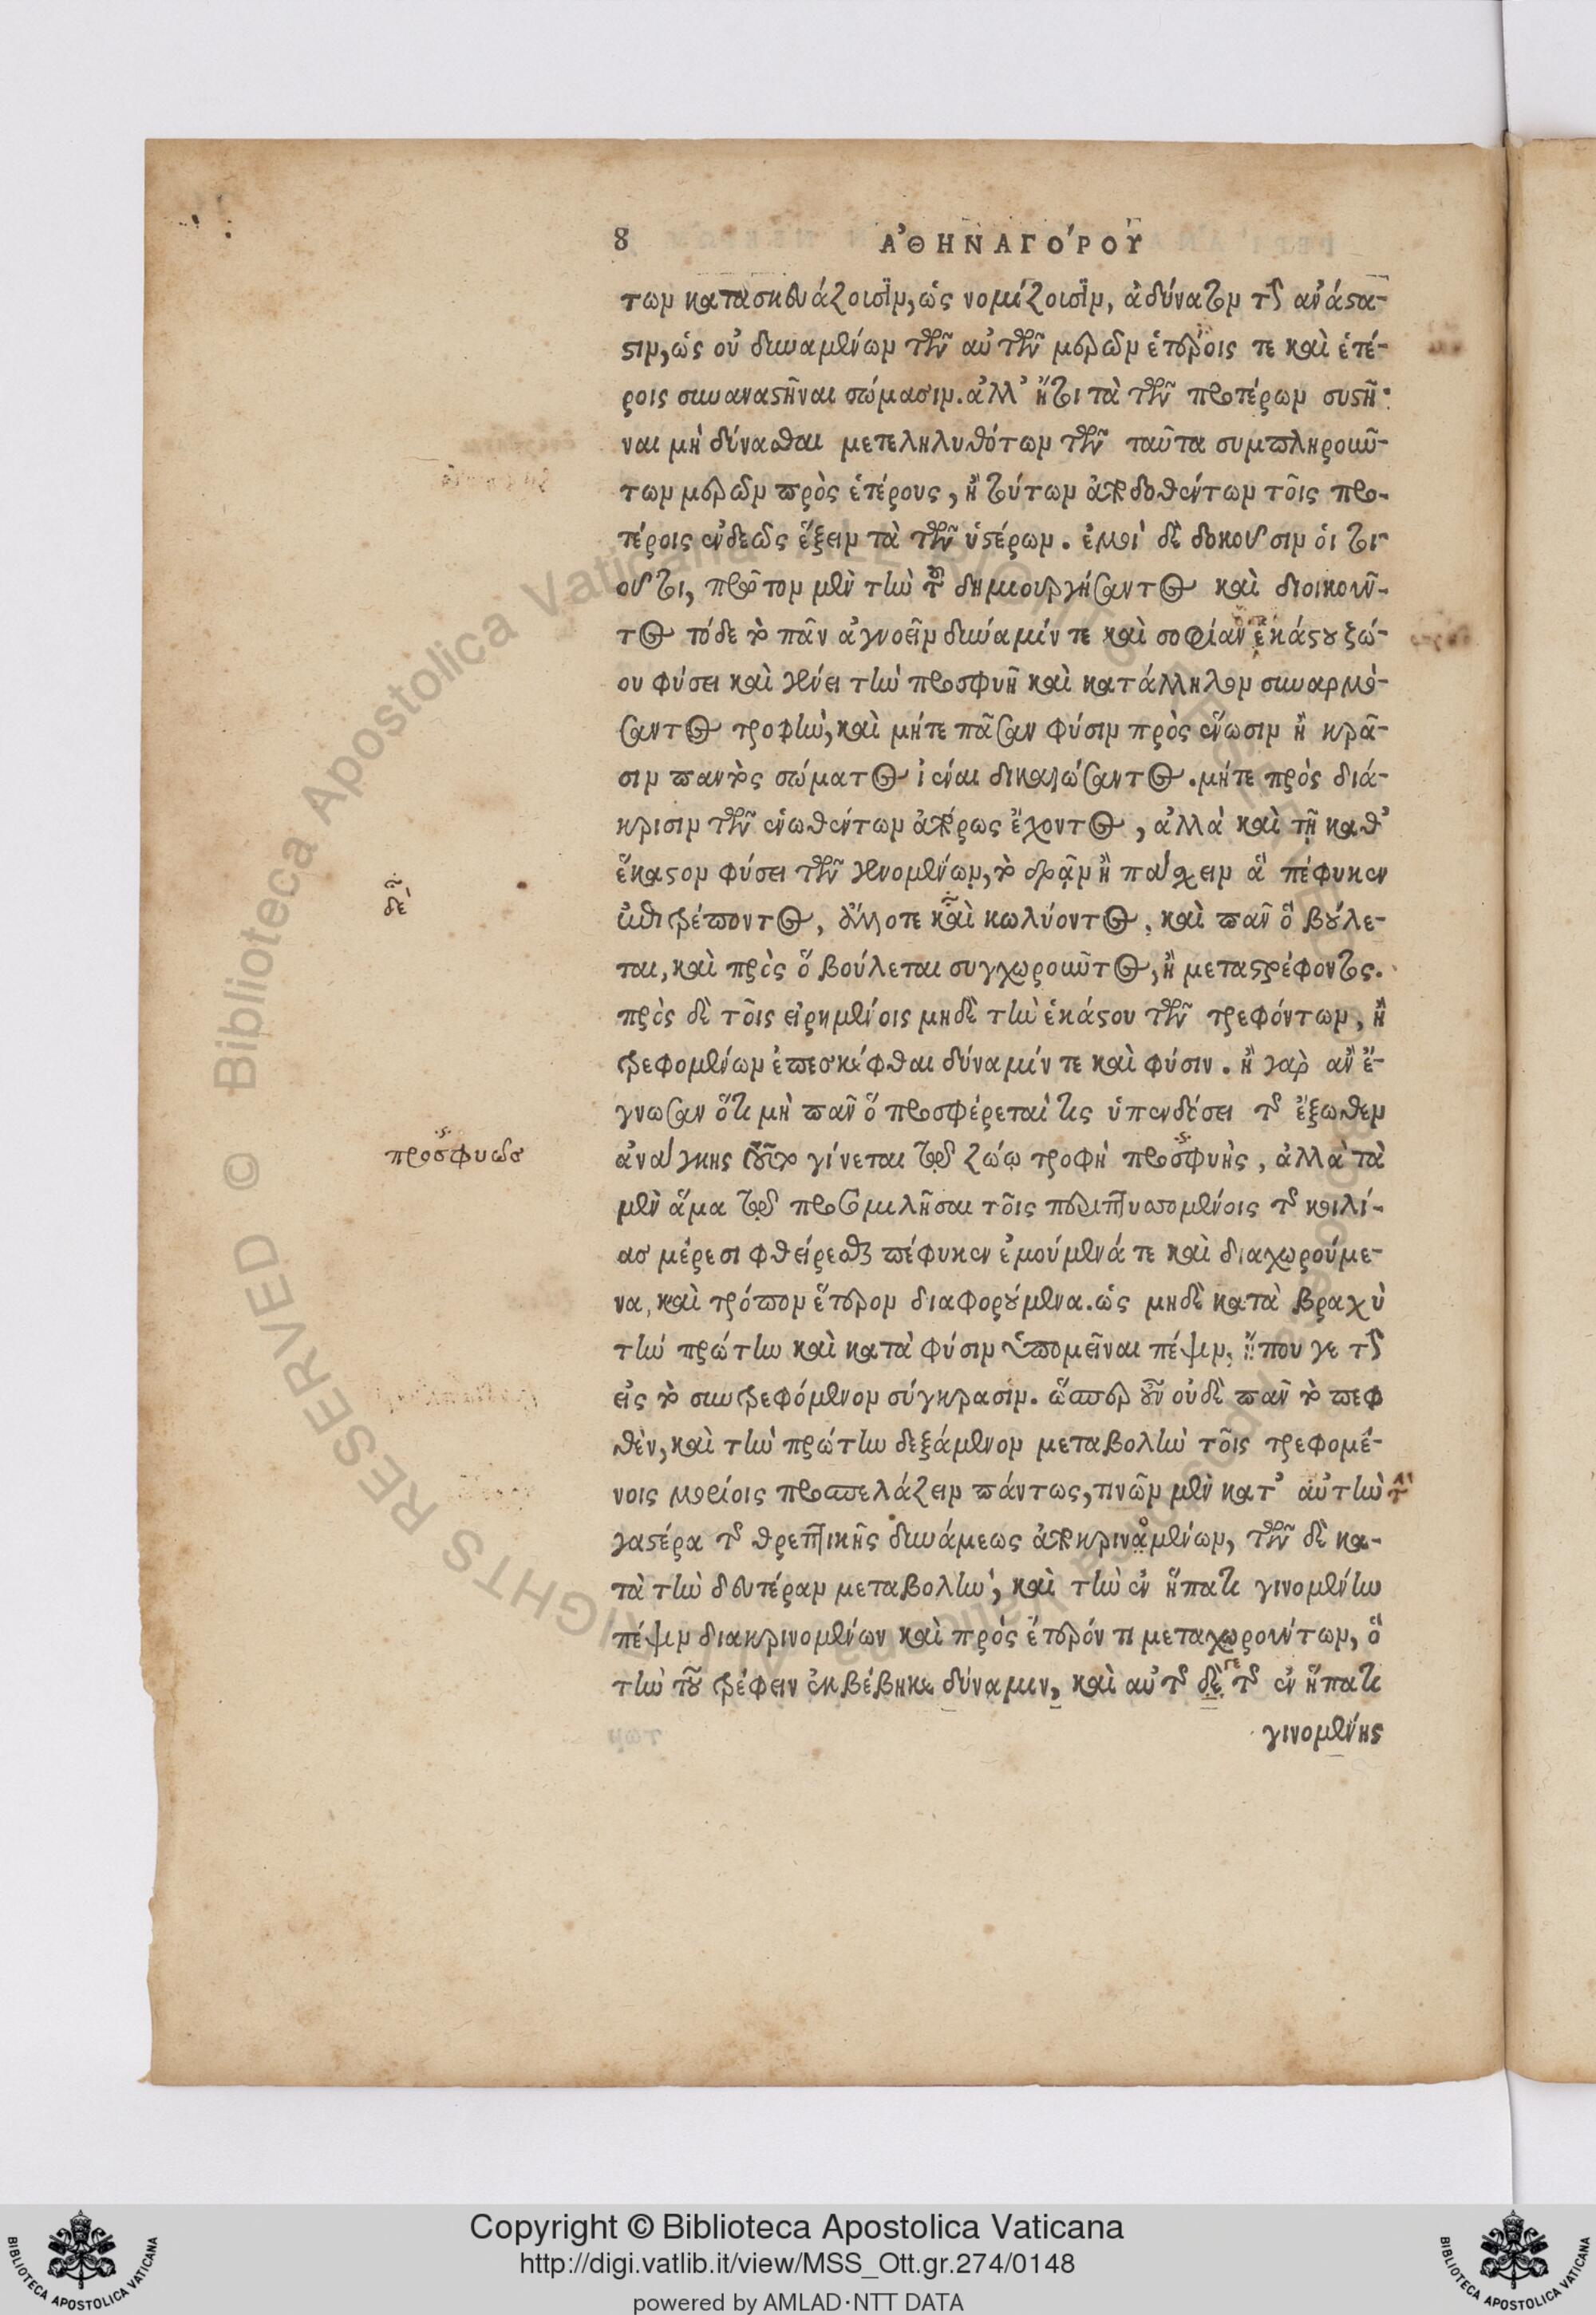 8 ἈΘΗΝΑΓΟΎΡΟΥ
των κατασκευάζουσιν, ὡς νομίζουσιν, ἀδύνατον τὴν ἀνάστα-
σιν, ὡς οὐ δυναμένων τῶν αὐτῶν μερῶν ἑτέροις τε καὶ ἑτέ-
ροις συναναστῆναι σώμασιν. ἀλλ' ἤτοι τὰ τῶν προτέρων συστῆ-
ναι μὴ δύνασθαι μετεληλυθότων τῶν ταῦτα συμπληρούν-
των μερῶν πρὸς ἑτέρους, ἢ τούτων ἀποδοθέντων τοῖς προ-
τέροις ἐνδεῶς ἕξειν τὰ τῶν ὑστέρων. ἐμοὶ δὲ δοκοῦσιν οἱ τοι-
οῦτοι, πρῶτον μὲν τὴν τοῦ δημιουργήσαντος καὶ διοικοῦν-
τος τόδε τὸ πᾶν ἀγνοεῖν δύναμίν τε καὶ σοφίαν ἑκάστου ζώ-
ου φύσει καὶ γένει τὴν προσφυῆ καὶ κατάλληλον συναρμό-
σαντος τροφὴν, καὶ μήτε πᾶσαν φύσιν πρὸς ἕνωσιν ἢ κρᾶ-
σιν παντὸς σώματος ἰέναι δικαιώσαντος. μήτε πρὸς διά-
κρισιν τῶν ἑνωθέντων ἀπόρως ἔχοντος, ἀλλὰ καὶ τῇ καθ'
ἕκαστον φύσει τῶν γενομένων, τὸ δρᾶν ἢ πάσχειν ἃ πέφυκεν
ἐπιτρέποντος, ἄλλοτε καὶ κωλύοντος, καὶ πᾶν ὃ βούλε-
ται, καὶ πρὸς ὃ βούλεται συγχωροῦντος, ἢ μεταστρέφοντος.
πρὸς δὲ τοῖς εἰρημένοις μηδὲ τὴν ἑκάστου τῶν τρεφόντων, ἢ
τρεφομένων ἐπεσκέφθαι δύναμίν τε καὶ φύσιν. ἦ γὰρ ἂν ἔ-
γνωσαν ὅτι μὴ πᾶν ὃ προσφέρεταί τις ὑπενδόσει τῆς ἔξωθεν
ἀνάγκης τοῦτο γίνεται τῷ ζώῳ τροφὴ προσφυὴς, ἀλλὰ τὰ
μὲν ἅμα τῷ προσομιλῆσαι τοῖς περιπτυσσομένοις τῆς κοιλί-
ας μέρεσι φθείρεσθαι πέφυκεν ἐμούμενά τε καὶ διαχωρούμε-
να, καὶ τρόπον ἕτερον διαφορούμενα. ὡς μηδὲ κατὰ βραχὺ
τὴν πρώτην καὶ κατὰ φύσιν ὑπομεῖναι πέψιν, ἤπου γε τὴν
εἰς τὸ συντρεφόμενον σύγκρασιν. ὥσπερ οὖν οὐδὲ πᾶν τὸ πεφ
θὲν, καὶ τὴν πρώτην δεξάμενον μεταβολὴν τοῖς τρεφομέ-
νοις μορίοις προσπελάζειν πάντως, τινῶν μὲν κατ' αὐτὴν τὴν
γαστέρα τῆς θρεπτικῆς δυνάμεως ἀποκριναμένων, τῶν δὲ κα-
τὰ τὴν δευτέραν μεταβολὴν, καὶ τὴν ἐν ἥπατι γινομένην
πέψιν διακρινομένων καὶ πρὸς ἕτερόν τι μεταχωρούντων, ὃ
τὴν τοῦ τρέφειν ἐκβέβηκε δύναμιν, καὶ αὐτῆς δὲ γε τῆς ἐν ἥπατι
γινομένης
δὲ
προσφυῶς
Copyright © Biblioteca Apostolica Vaticana
http://digi.vatlib.it/view/MSS_Ott.gr.274/0148
powered by AMLAD·NTT DATA